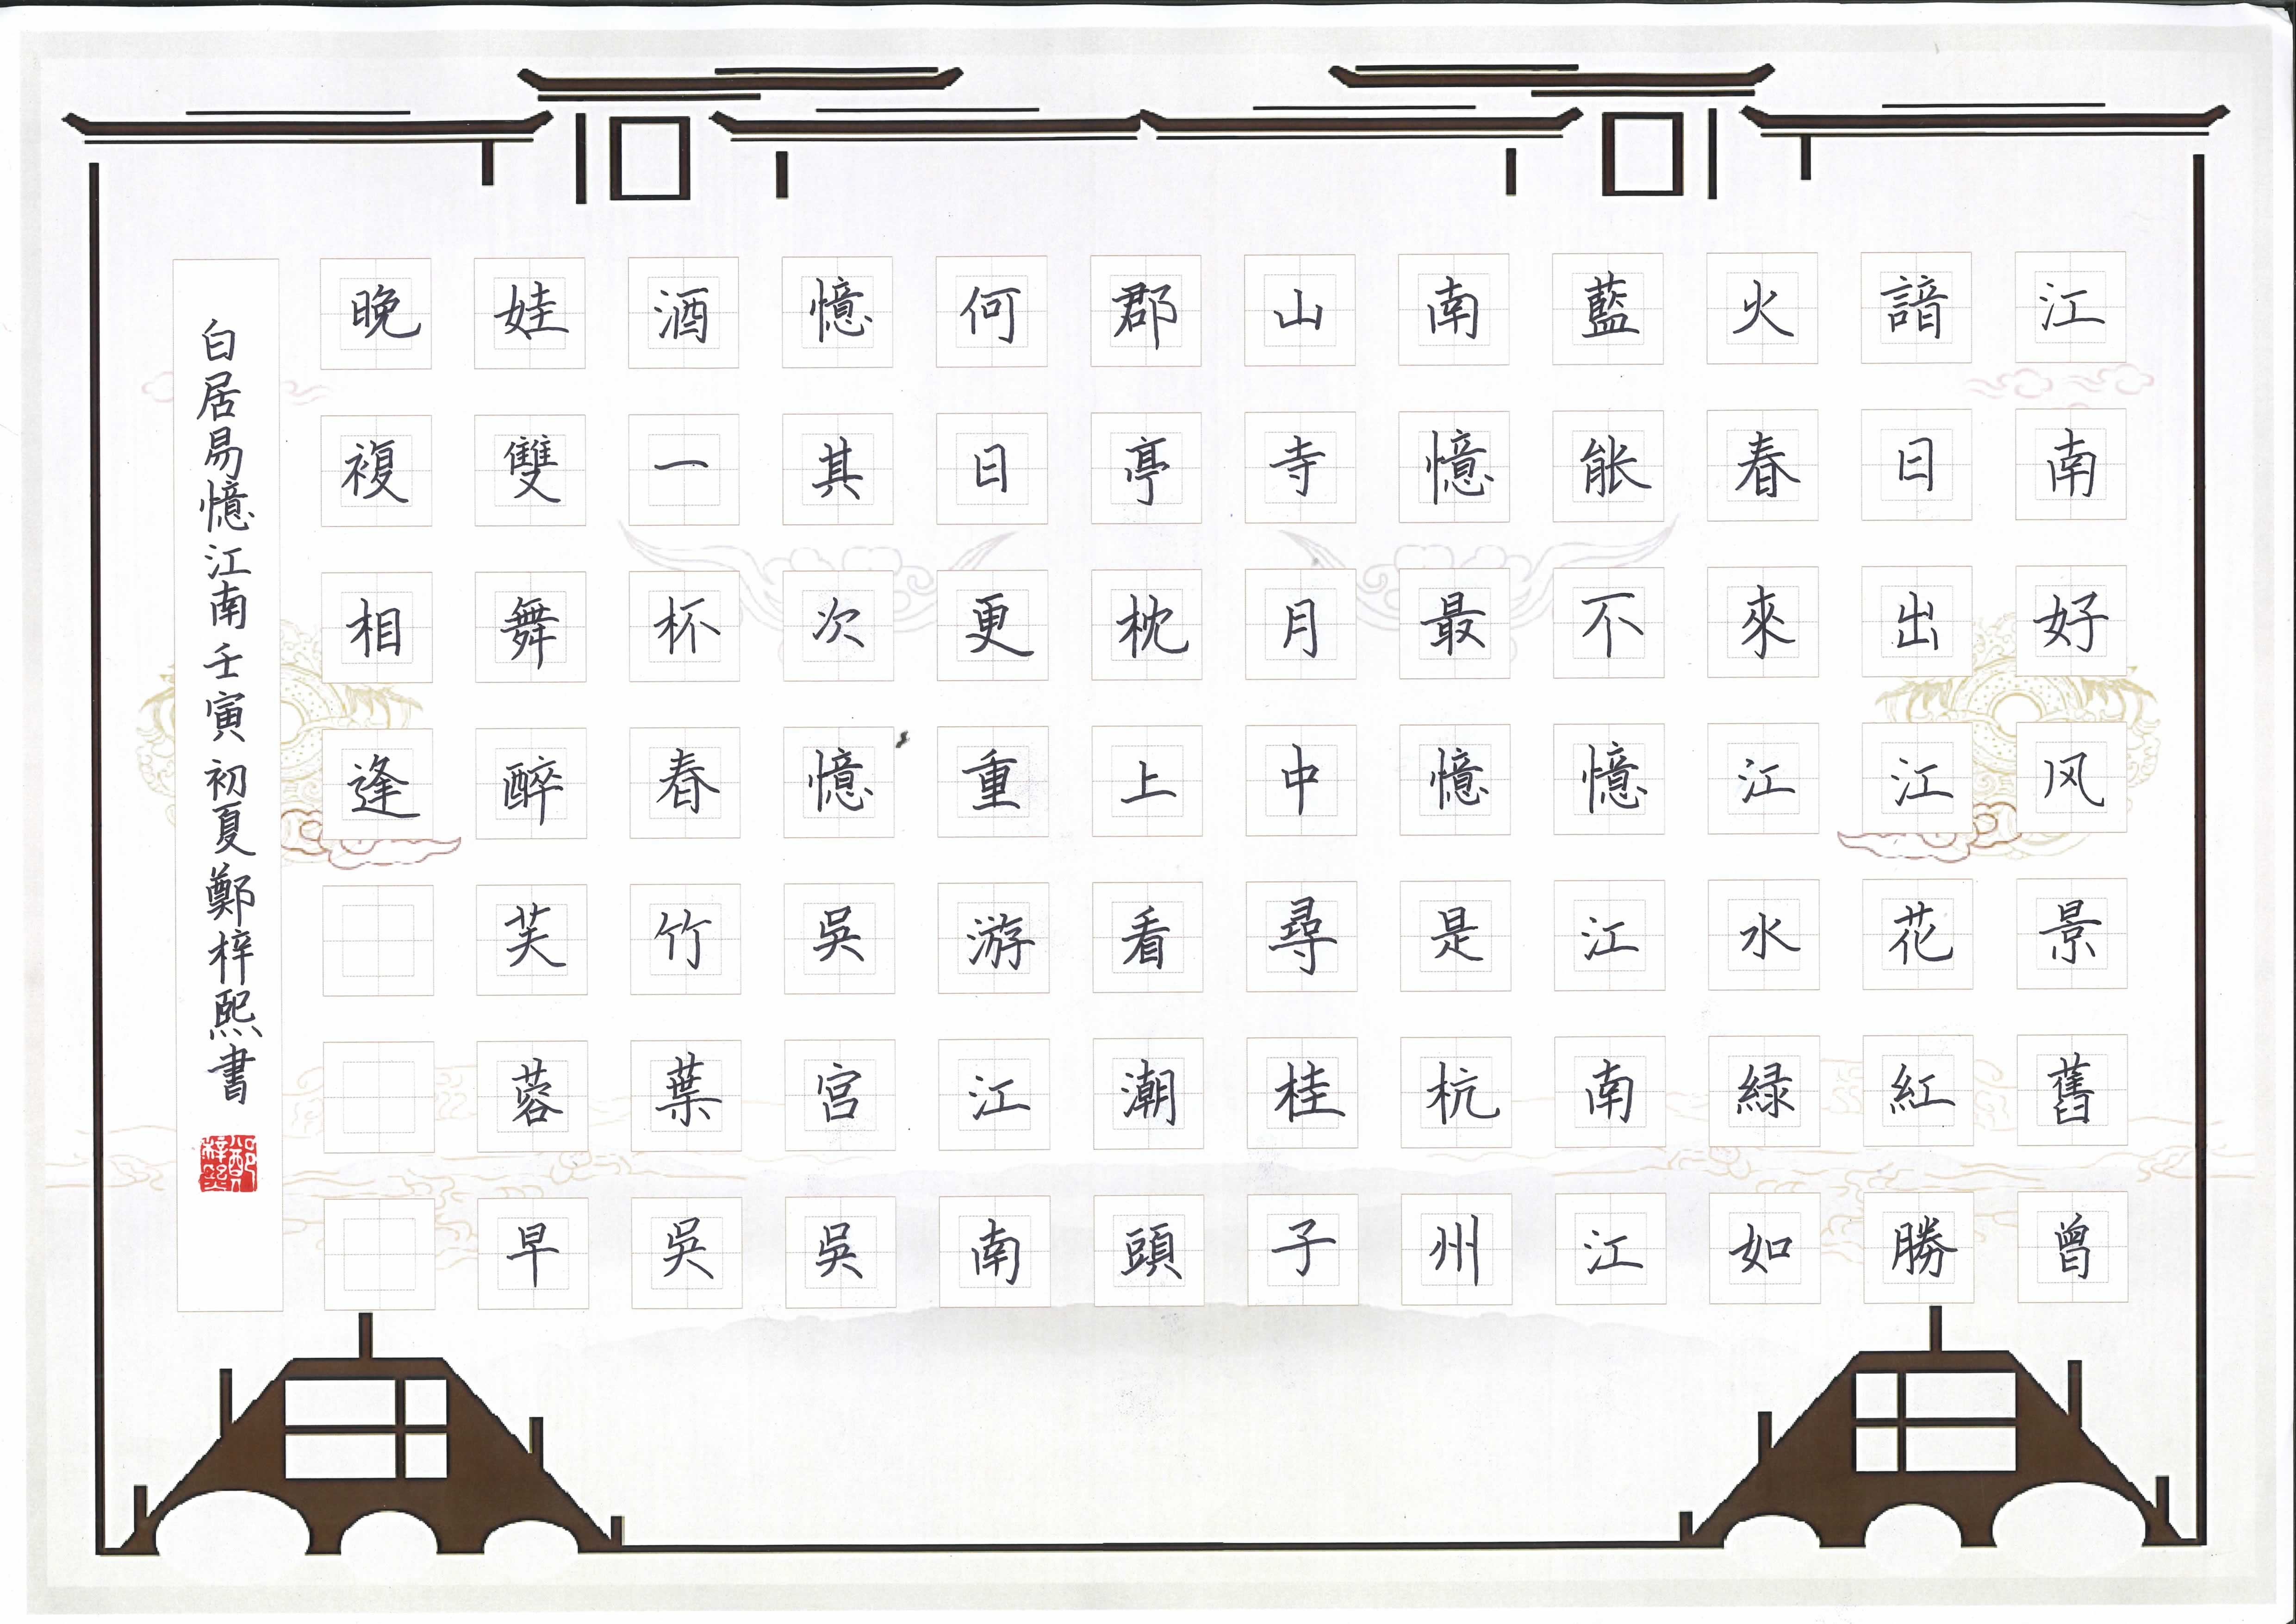 江南好风景舊曾
諳日出江花紅勝
火春來江水緑如
藍能不憶江南江
南憶最憶是杭州
山寺月中尋桂子
郡亭枕上看潮頭
何日更重游江南
憶其次憶吳宫吳
酒一杯春竹葉吳
娃雙舞醉芙蓉早
晚複相逢
白居易憶江南壬寅初夏鄭梓熙書
鄭梓熙